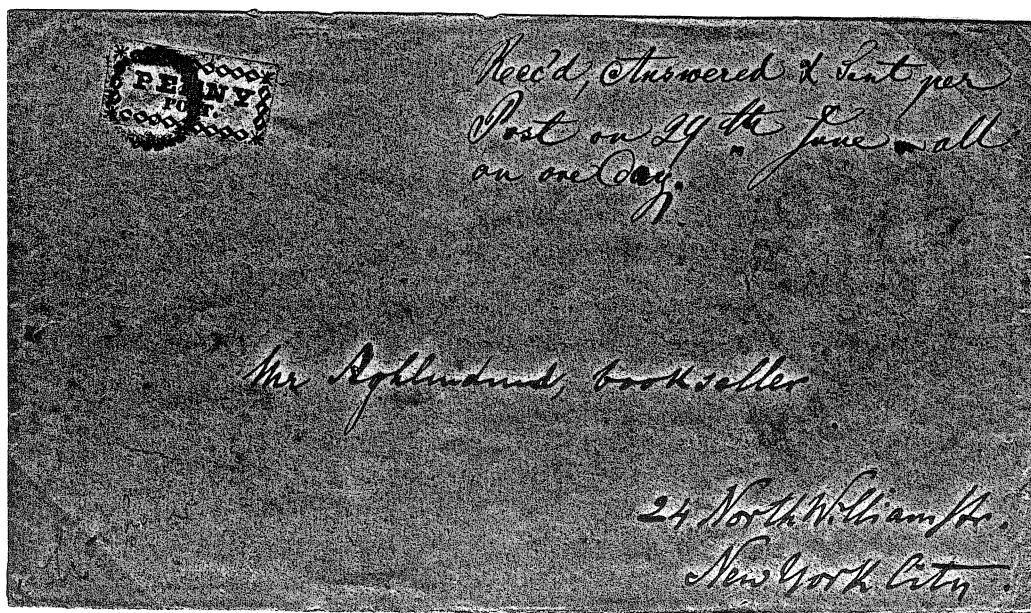 PENNY
POST.
Rec'd, Answered & Sent per
Post on 29th June - all
on one day.
Mr , bookseller
24 North William Str.
New York City.